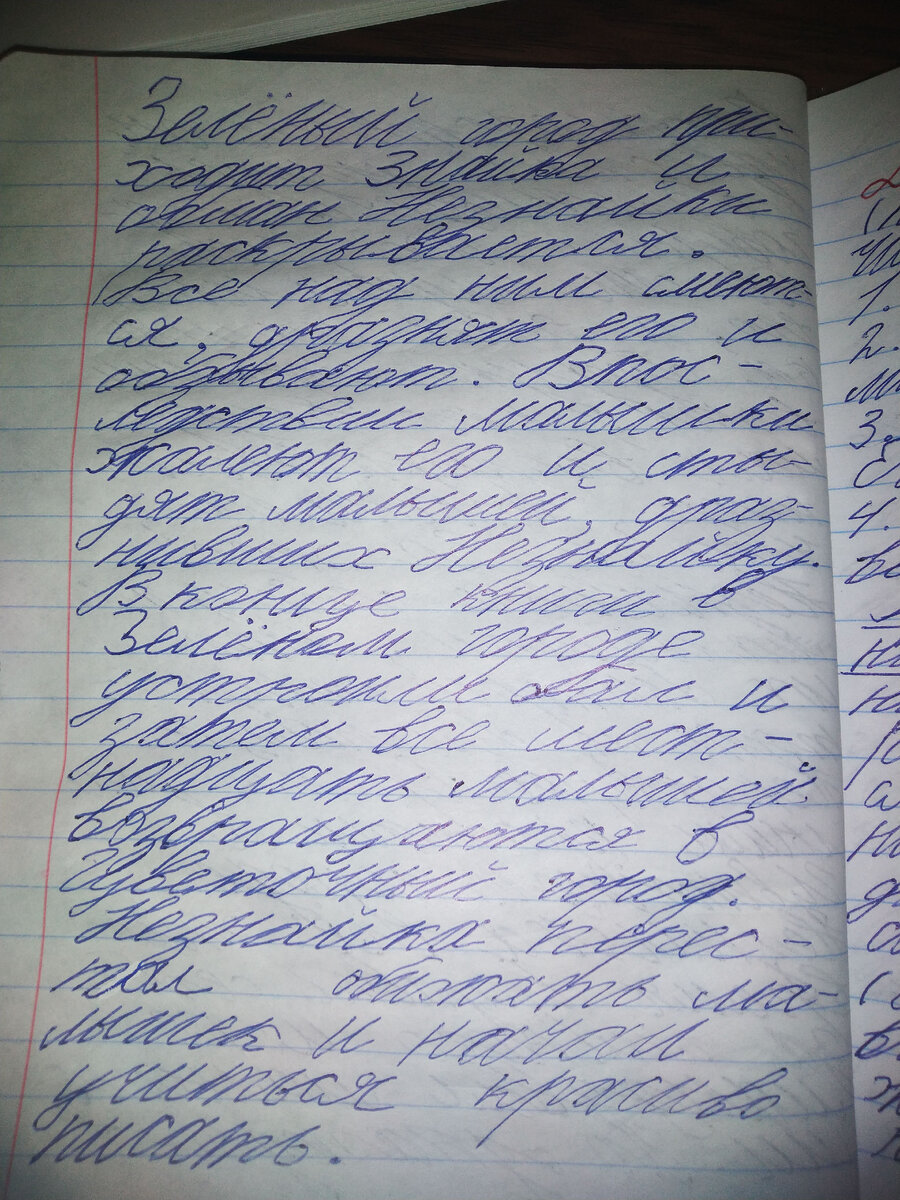 Зелёный город при-
ходит Знайка и
обман Незнайки
раскрывается.
Все над ним смеют-
ся, дразнят его и
обзывают. Впос-
ледствии малышки
жалеют его и сты-
дят малышей, драз-
нивших Незнайку.
В конце книги в
Зелёном городе
устроили бал и
затем все шест-
надцать малышей
возвращаются в
Цветочный город.
Незнайка перес-
тал обижать ма-
лышек и начал
учиться красиво
писать.
1.
2.
3.
4.